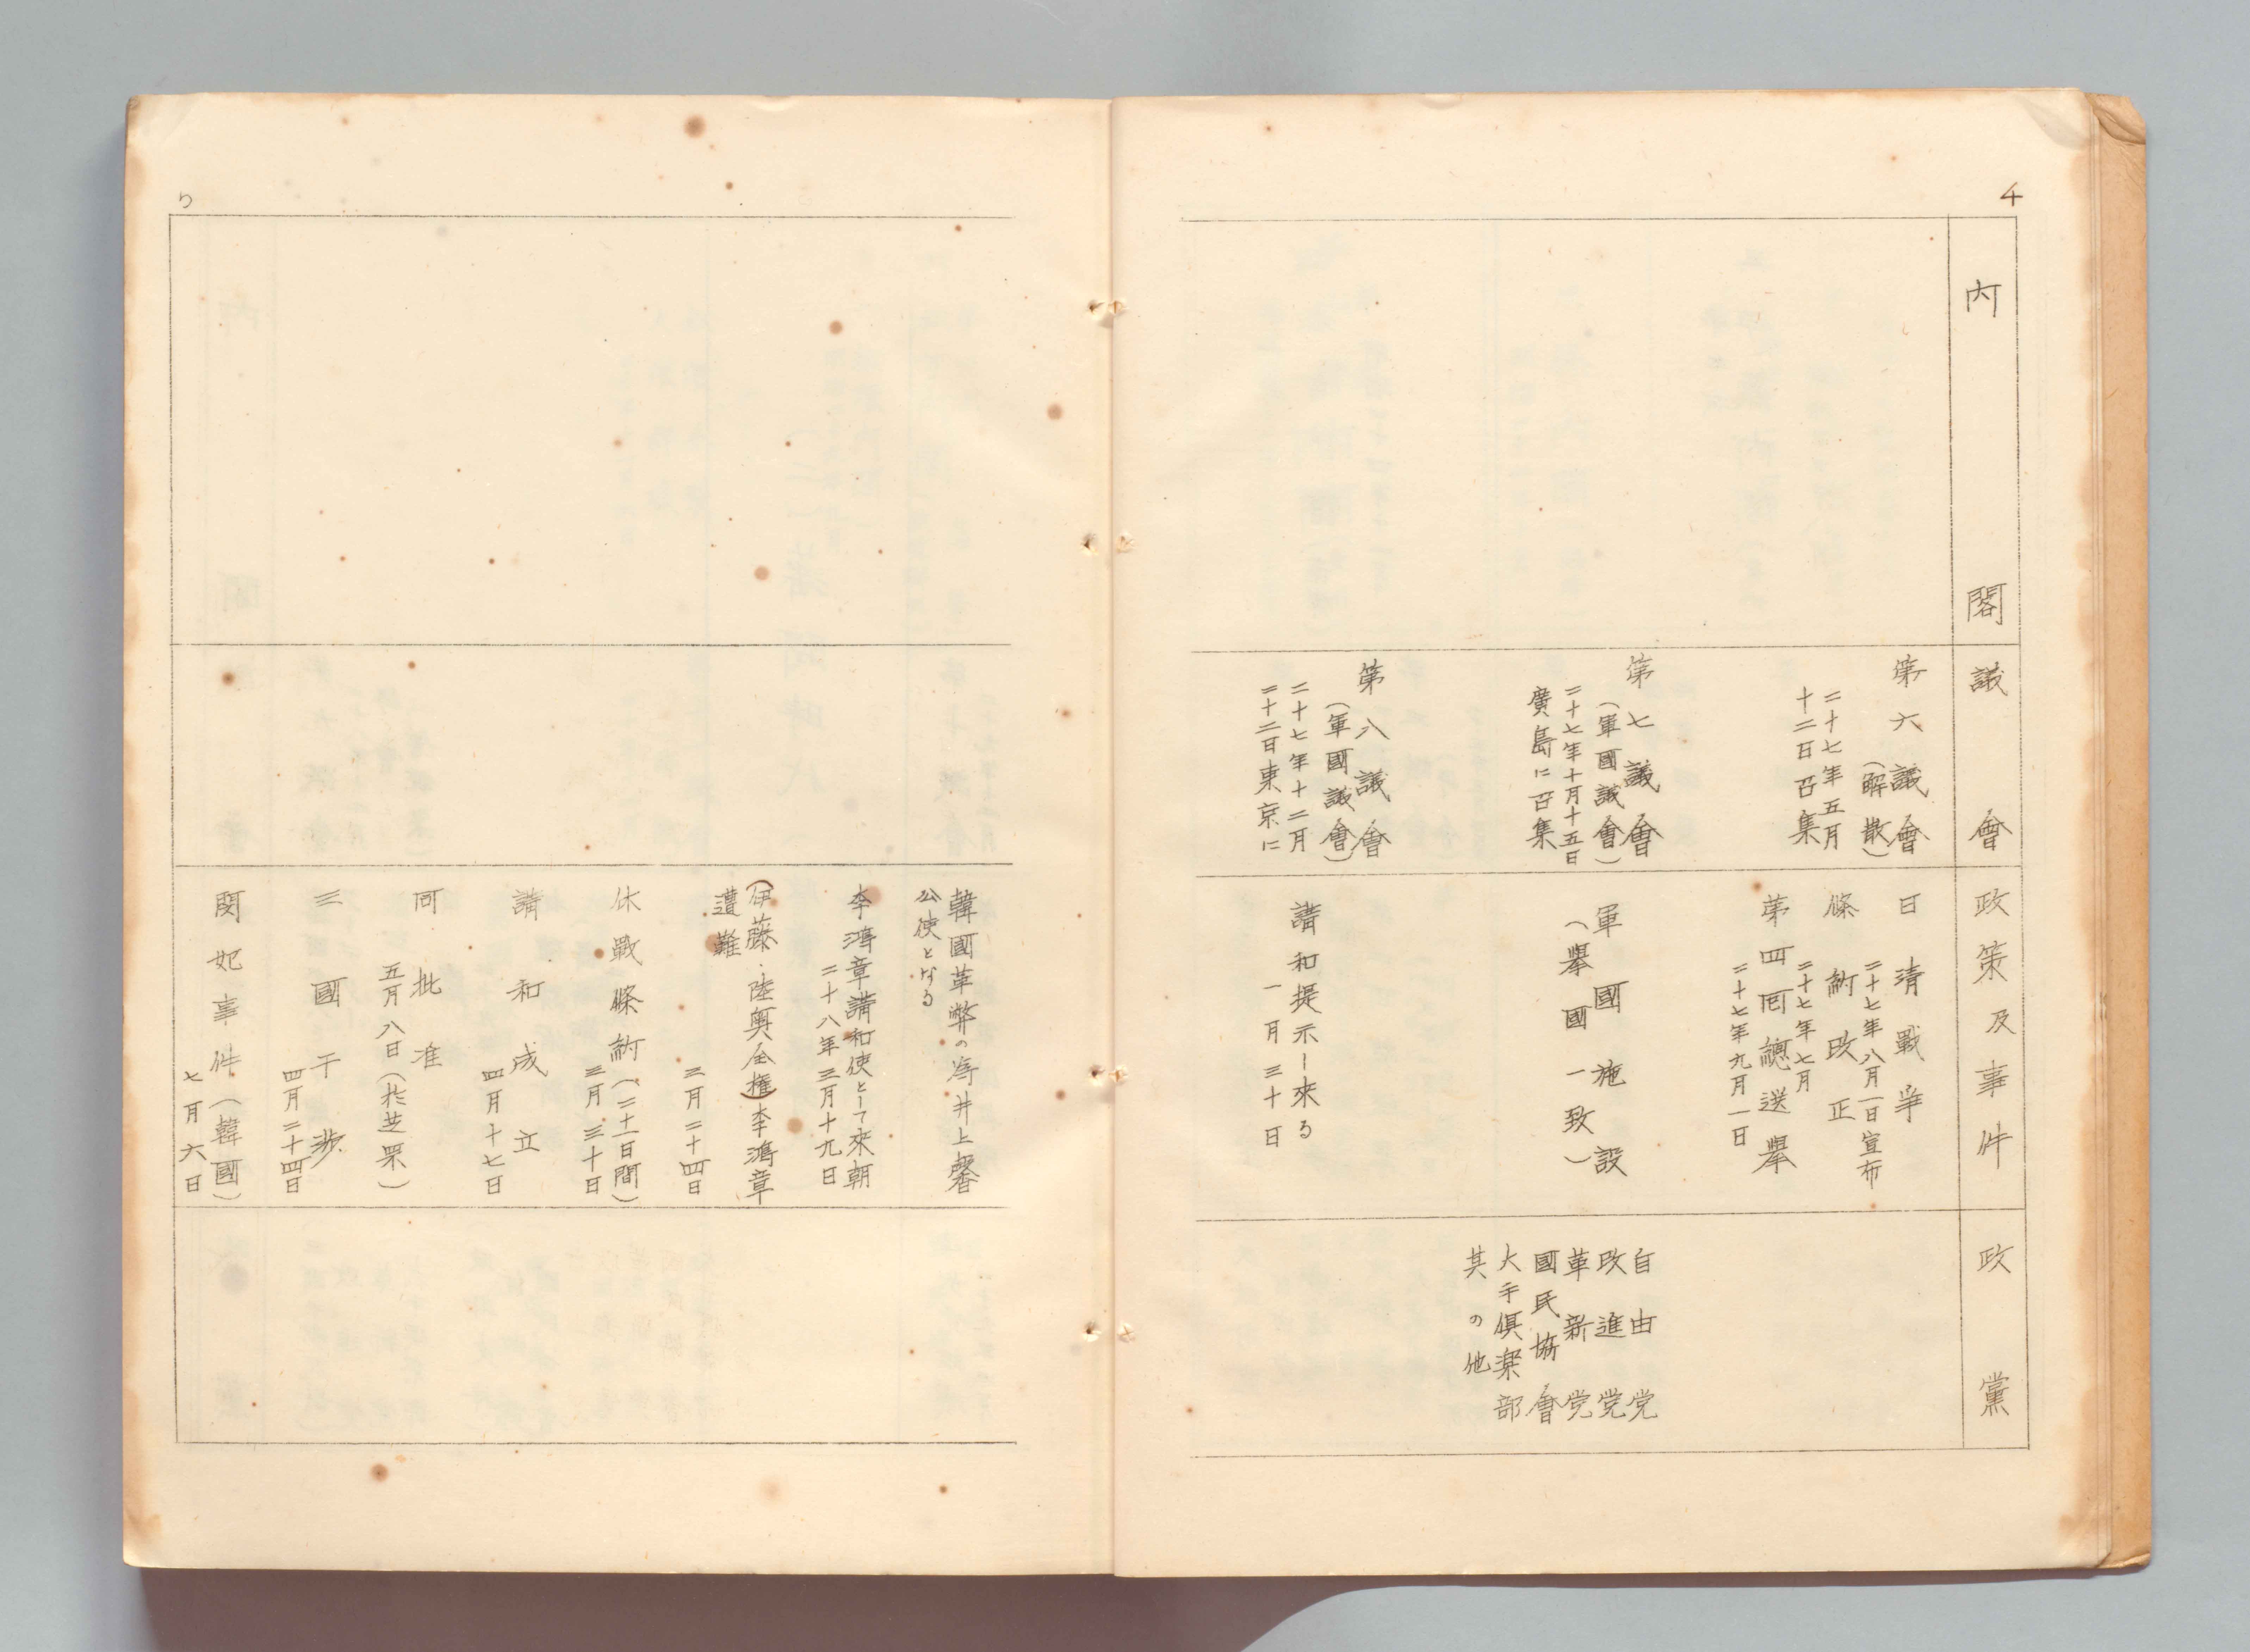 4
内閣
議會
政策及事件
政黨
第六議會
（解散）
二十七年五月
十二日召集
第七議會
（軍國議會）
二十七年十月十五日
廣島に召集
第八議會
（軍國議會）
二十七年十二月
二十二日東京に
日清戰爭
二十七年八月一日宣布
條約改正
二十七年七月
第四回總送擧
二十七年九月一日
軍國施設
（擧國一致）
講和提示し來る
一月三十日
自由党
改進党
革新党
國民協會
大手俱楽部
其の他
5
韓國革弊の為井上馨
公使となる
李鴻章講和使として來朝
二十八年三月十九日
（伊藤・陸奥全権）李鴻章
遭難
三月二十四日
休戰條約（二十一日間）
三月三十日
講和成立
四月十七日
同批准
五月八日（於芝罘）
三國干涉
四月二十四日
閔妃事件（韓國）
七月六日